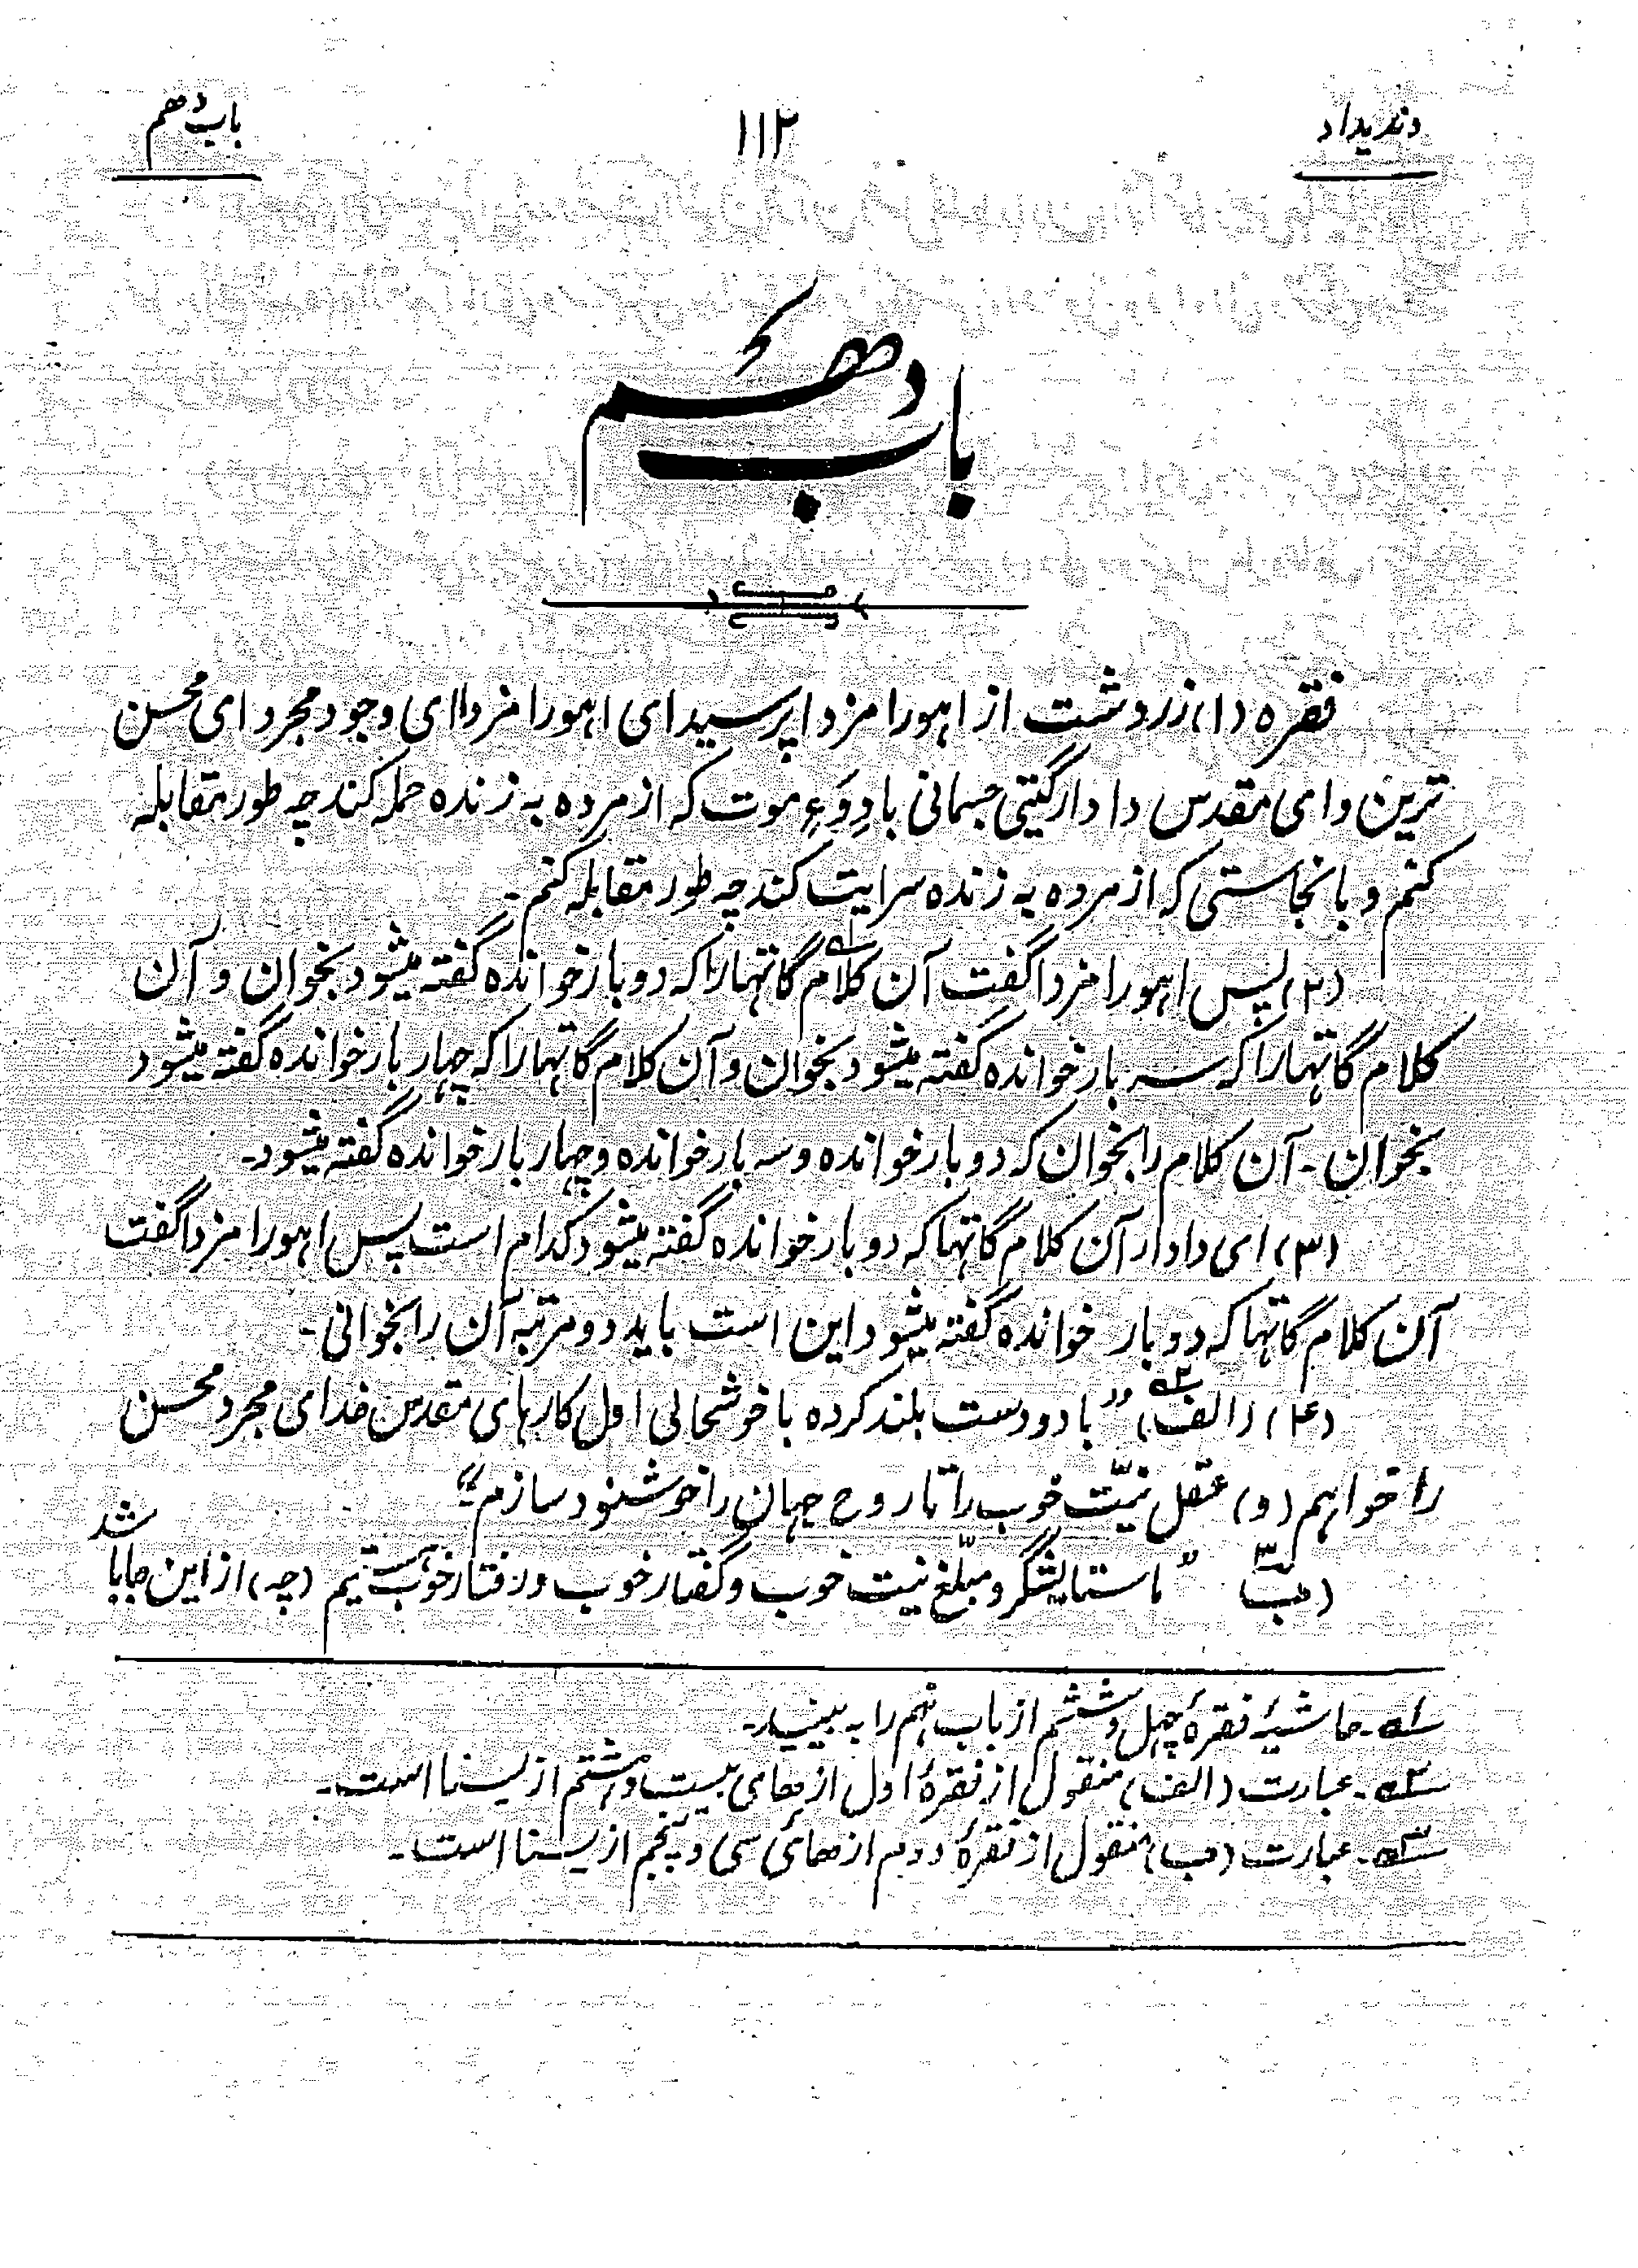 وندیداد
۱۱۲
باب دهم
باب دهم
فقره (۱) زردوشت از اهورا مزدا پرسید ای اهورا مزدا ای وجود مجرد ای محسن
ترین و ای مقدس دادار گیتی جسمانی با دِوَءِ موت که از مرده به زنده حمله کند چه طور مقابله
کنم و با نجاستی که از مرده به زنده سرایت کند چه طور مقابله کنم-
(۲) پس اهورا مزدا گفت آن کلام۱ گاتها را که دو بار خوانده گفته میشود بخوان و آن
کلام گاتها را که سه بار خوانده گفته میشود بخوان و آن کلام گاتها را که چهار بار خوانده گفته میشود
بخوان- آن کلام را بخوان که دو بار خوانده و سه بار خوانده و چهار بار خوانده گفته میشود-
(۳) ای دادار آن کلام گاتها که دو بار خوانده گفته میشود کدام است پس اهورا مزدا گفت
آن کلام گاتها که دو بار خوانده گفته میشود این است باید دو مرتبه آن را بخوانی-
(۴) (الف)۲ "با دو دست بلند کرده با خوشحالی اول کارهای مقدس خدای مجرد محسن
را خواهم (و) عقل نیّت خوب را تا روح جهان را خوشنود سازم"-
(ب)۳ "ما ستایشگر و مبلّغ نیت خوب و گفتار خوب و رفتار خوب هستیم (چه) از این جابا شد
۱ه- حاشیهٔ فقرهٔ چهل و ششم از باب نهم را به بینید-
۲ه- عبارت (الف) منقول از فقرهٔ اول از های بیست و هشتم از یسنا است-
۳ه- عبارت (ب) منقول از فقرهٔ دوم از هائی سی و پنجم از یسنا است-